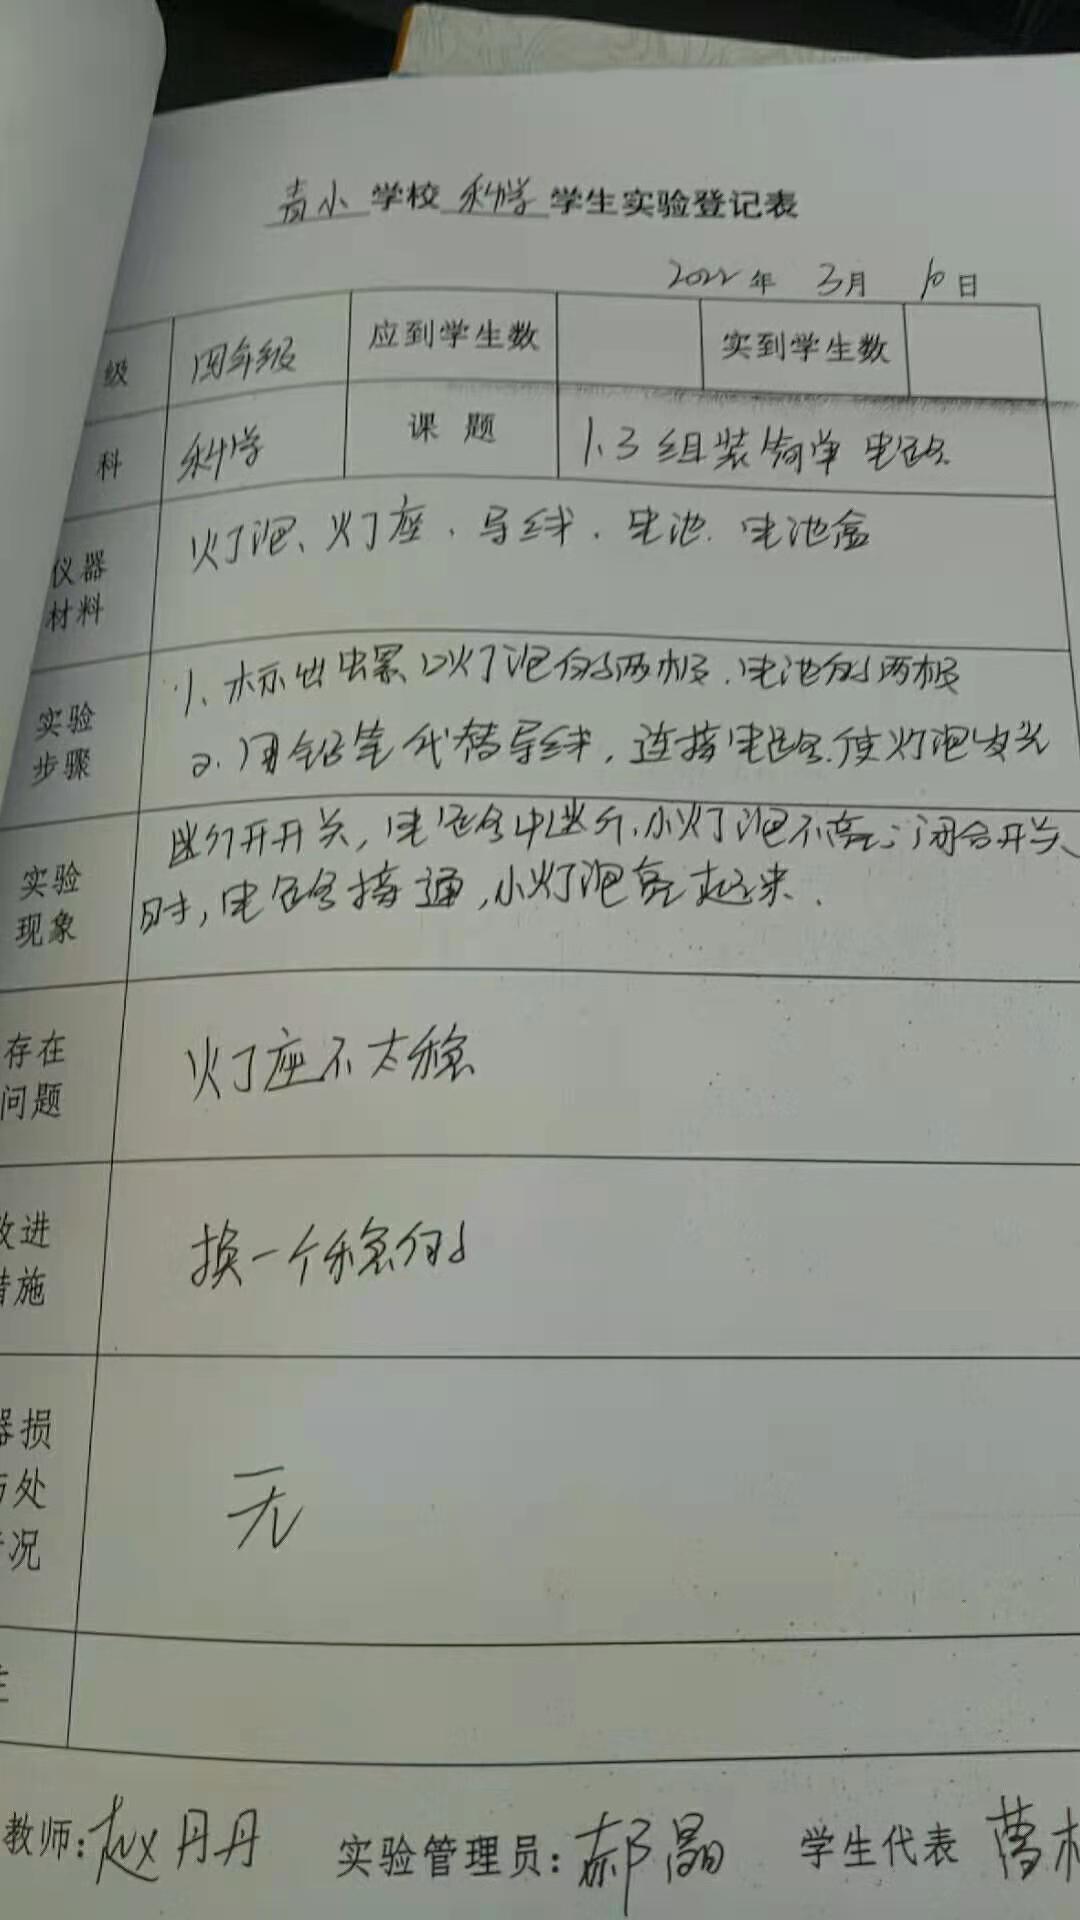 青小学校科学学生实验登记表
2022年 3月 10日
级 四年级 应到学生数 实到学生数
科 科学 课题 1.3组装简单电路
仪器
材料
灯泡、灯座、导线、电池、电池盒
实验
步骤
1、标出 灯泡的两极、电池的两极
2.用铅笔代替导线,连接电路,使灯泡发光
实验
现象
断开开关,电路中断,小灯泡不亮;闭合开关
时,电路接通,小灯泡亮起来.
存在
问题
灯座不太稳
改进
措施
换一个稳的
器损
处
况
无
教师:赵丹丹 实验管理员:郝晶 学生代表 曹